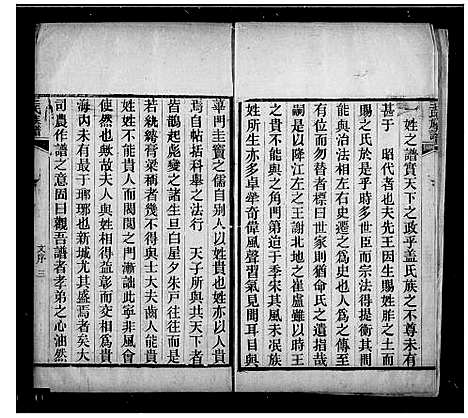 姓之譜貴天下之政乎蓋氏族之不尊未有
甚于　昭代者也夫先王因生賜姓胙土而
賜之氏於是乎時多世臣而宗法得提衡其間
有位而勿替者標曰世家則猶命氏之遺指哉
能與治法相左右史遷之為史也人為之傳至
南以降江左之王謝北地之崔盧雖以時王
之官爵不能奪諸其門第之季宋其風未泯故
姓所生亦多卓犖奇偉風聲習氣見聞耳目與
蓽門圭竇之儒自别人以姓貴也姓亦以人貴
焉自帖括科舉之法行　天子所與共天下者
皆鵲起彪變之諸生旦白屋夕朱戶往往有之
若紈綺膏粱稱者幾不得與士大夫齒人能貴
姓姓不能貴人而閥閱之門漸詘此寧非風會
使然也歟故夫人與姓相得益彰而交相貴
海內未有最于瑯琊也新城尤其盛焉者矣大
司農作譜之意固曰觀吾譜者孝弟之心油然
文序　三